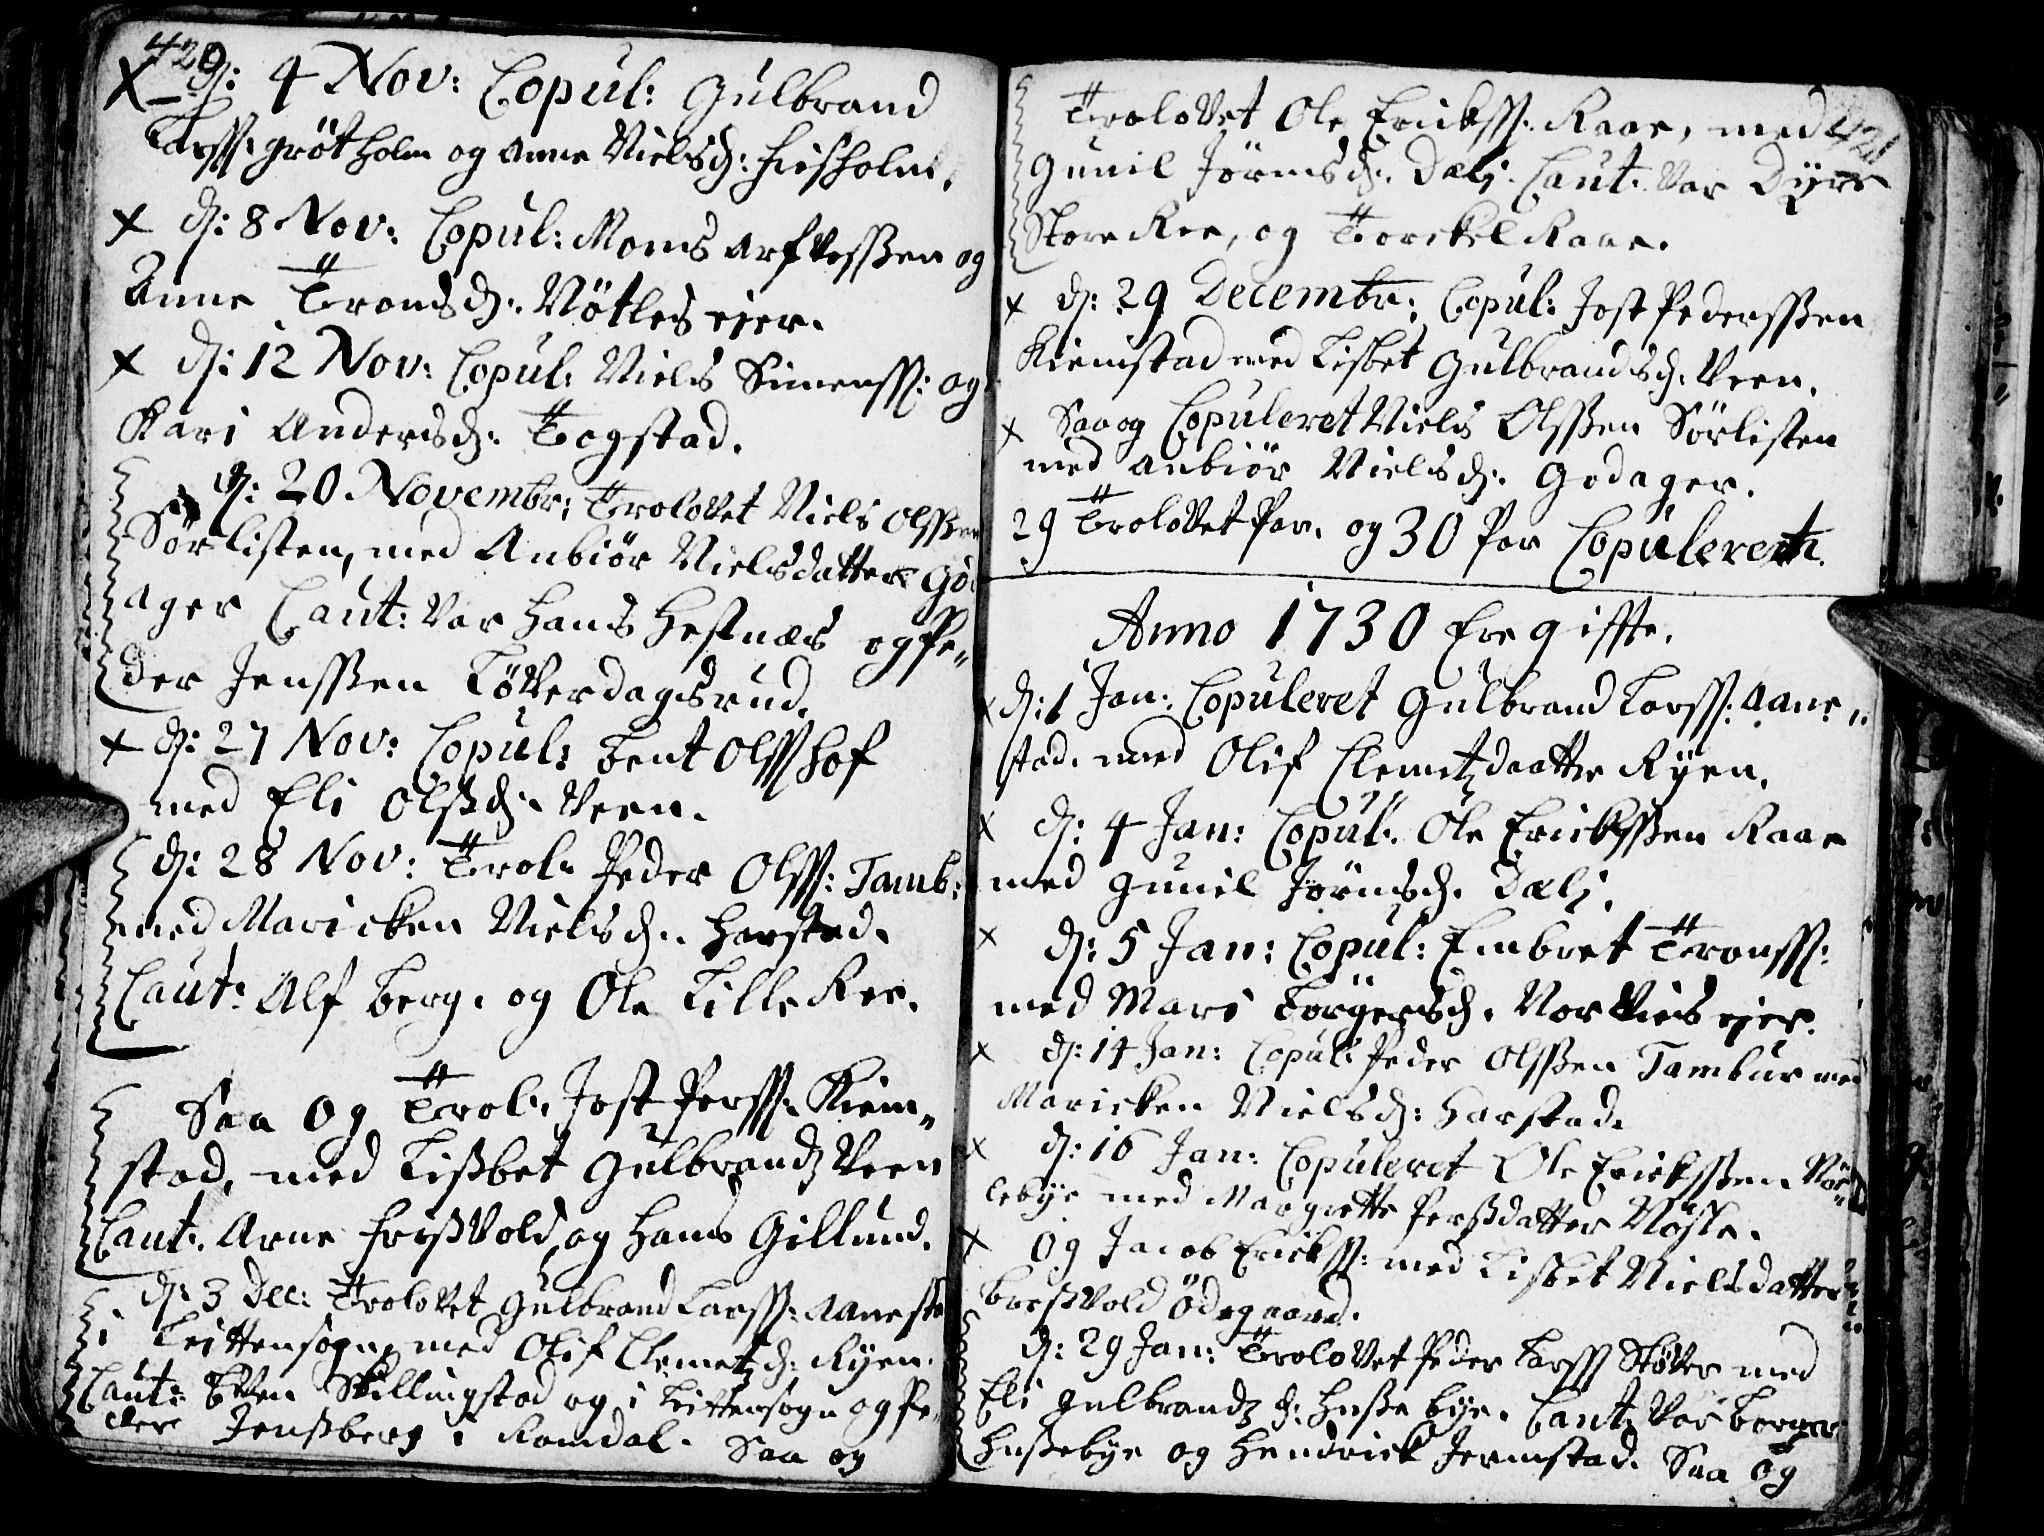 420
d: 4 Nov: Copul: Gulbrand
Larss: grötholm og Anne Nielsd: hiesholm.
d: 8 Nov: Copul: Moens Arfvessen og
Anne Tronsd: Nötles ejer.
d: 12 Nov: Copul: Niels Simenss: og
Kari Andersd: Togstad.
d: 20 Novembr: Trolovet Niels Olssen
Sörlisten, med Anbiör Nielsdatter God
ager Caut: var Hans Hestnæs og Pe„
der Jenssen Löverdagsrud.
d: 27 Nov: Copul: Bent Olss Hof
med Eli Olsd. Veen.
d: 28 Nov: Trol. Peder Olss: Tamb:
med Maricken Nielsd. Harstad.
Caut: Alf Berg. og Ole Lille Ree.
Saa og Trol. Jost Perss: Kiem„
stad, med Lisbet Gulbrandz Veen
Caut. Arne Frisvold, og Hans Gillund.
d: 3 Dec: Trolovet Gulbrand Larss: Aanesta
i Leittensogn med Olif Clemetzd: Ryen.
Caut: Even Skillingstad og i Leittensogn og Pe„
der Jensberg i Romdal. Saa og
421
Trolovet Ole Erickss: Raae, med
Gunil Jörensd. Dælj. Caut. var Dyre
Store Ree, og Torckel Raae.
d: 29 Decembr: Copul: Jost Pederssen
Kiemstad med Lisbet Gulbrandsd. Veen.
Saa og Copuleret Niels Olssen Sörlisten
med Anbiör Nielsd. Godager.
29 Trolovet Par. og 30 Par Copuleret.
Anno 1730 Ere gifte.
d: 1 Jan: Copuleret Gulbrand Larss: Aane„
stad. med Olif Clemetzdaatter Ryen.
d: 4 Jan: Copul. Ole Erickssen Raae
med Gunil Jörensd. Dælj.
d: 5 Jan: Copul: Embret Tronss:
med Mari Torgersd. Norvies ejer.
d: 14 Jan: Copul: Peder Olssen Tambur med
Maricken Nielsd: Harstad.
d: 16 Jan: Copuleret Ole Erickssen Nör
lebye med Margrette Persdatter Nösle.
Og Jacob Erickss: med Lisbet Nielsdatter
Börsvold Ödegaard.
d: 29 Jan: Trolovet Peder Larss Stöver med
Eli Gulbrandz d: Husebye. Caut. var Borger
Husebye og Hendrick Jermstad. Saa og